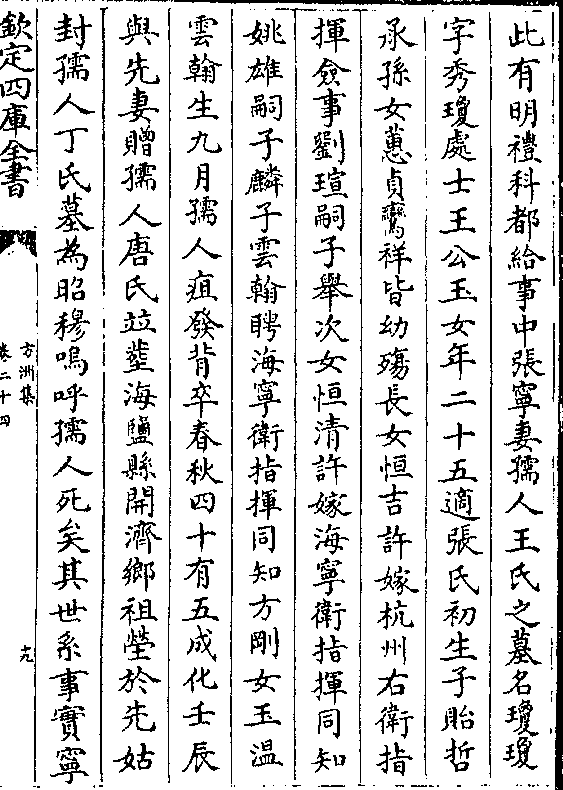 此有明禮科都給事中張寧妻孺人王氏之墓名瓊瓊
字秀瓊處士王公玉女年二十五適張氏初生子貽哲
承孫女蕙貞鸞祥皆幼殤長女恒吉許嫁杭州右衛指
揮僉事劉瑄嗣子舉次女恒清許嫁海寧衛指揮同知
姚雄嗣子麟子雲翰聘海寧衛指揮同知方剛女玉温
雲翰生九月孺人疽發背卒春秋四十有五成化壬辰
與先妻贈孺人唐氏竝塟海鹽縣開濟鄉祖塋於先姑
封孺人丁氏墓為昭穆嗚呼孺人死矣其世系事實寧
欽定四庫全書
方洲集
卷二十四
十九